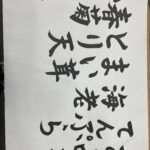 春菊
とり天
まい茸
海老
てんぷら